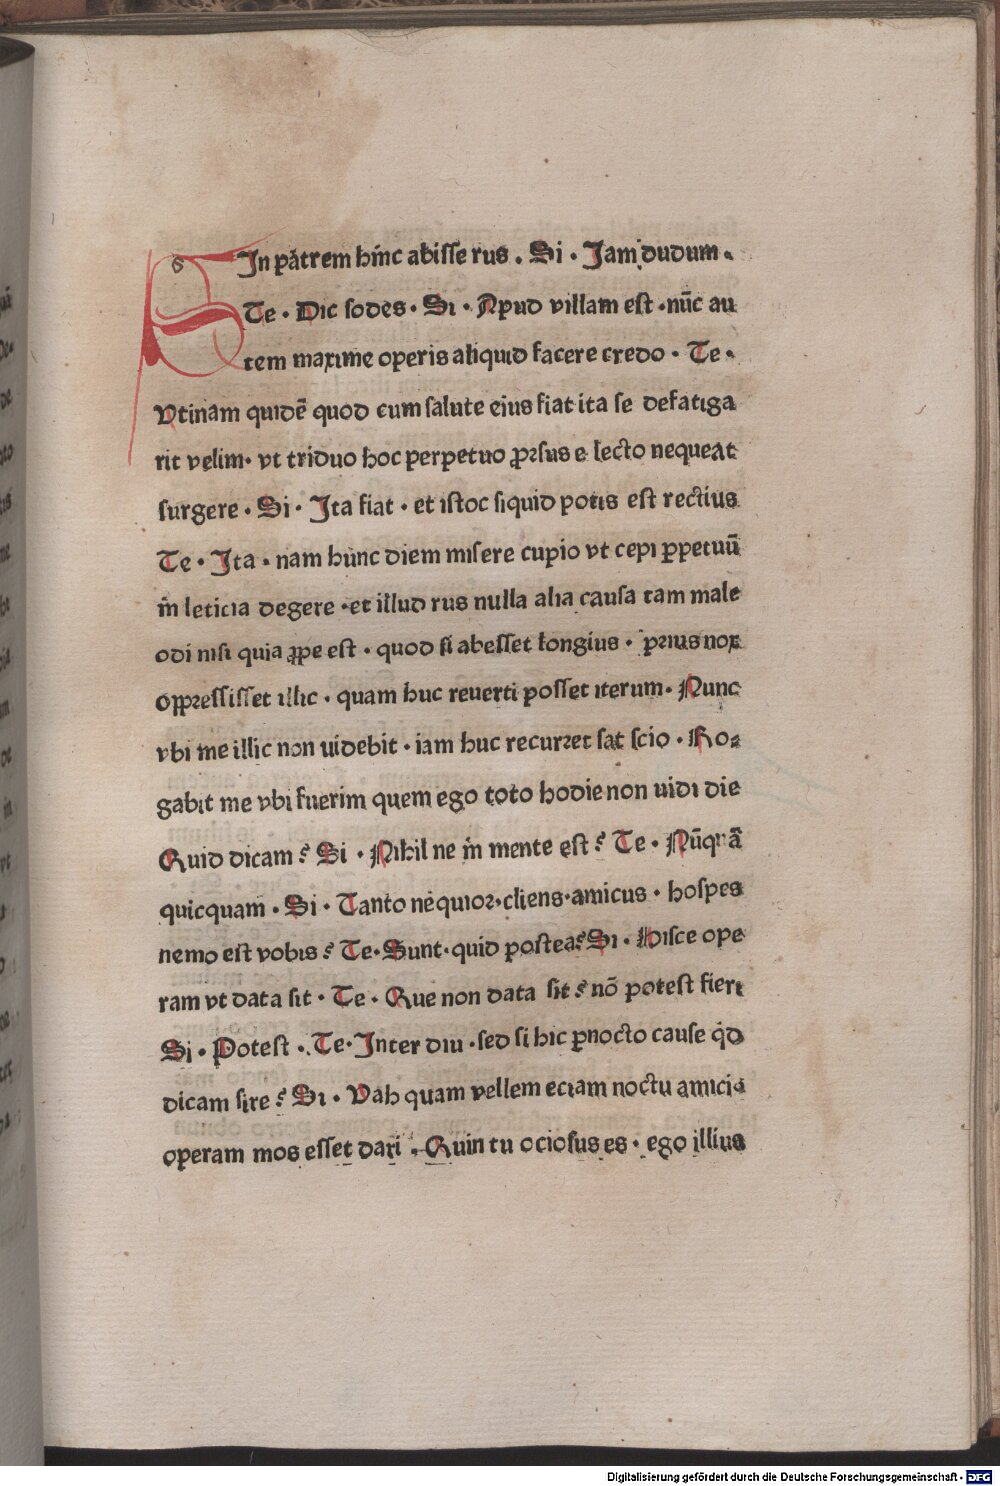 SJn pr̄trem hı́nc abisse rus . Si · Jam dudum ·
Te · Dic sodes · Si · Apud villam est · nūc au
tem maxime operis aliquid facere credo · Te ·
Vtinam quidē quod cum salute eius fiat ita se defatiga
rit velim · vt triduo hoc perpetuo ꝓrsus e lecto nequeat
surgere · Si · Jta fiat · et istoc siquid potis est rectius
Te · Jta · nam hunc diem misere cupio vt cepi ꝑpetuū
ī leticia degere · et illud rus nulla alia causa tam male
odi nisi quia ꝓpe est · quod si abesset longius · prius nox
oppressisset illic · quam huc reuerti posset iterum · Nunc
vbi me illic non uidebit · iam huc recurret sat scio · Ro⸗
gabit me vbi fuerim quem ego toto hodie non uidi die
Quid dicam ? Si · Nihil ne ī mente est ? Te · Nūquā
quicquam · Si · Tanto nequior · cliens · amicus · hospes
nemo est vobis ? Te · Sunt · quid postea ? Si · Hisce ope
ram vt data sit · Te · Que non data sit ? nō potest fieri
Si · Potest · Te · Inter diu · sed si hic ꝑnocto cause qd̄
dicam sire ? Si · Vah quam vellem eciam noctu amicis
operam mos esset dari · Quin tu ociosus es · ego illius
Digitalisierung gefördert durch die Deutsche Forschungsgemeinschaft · DFG